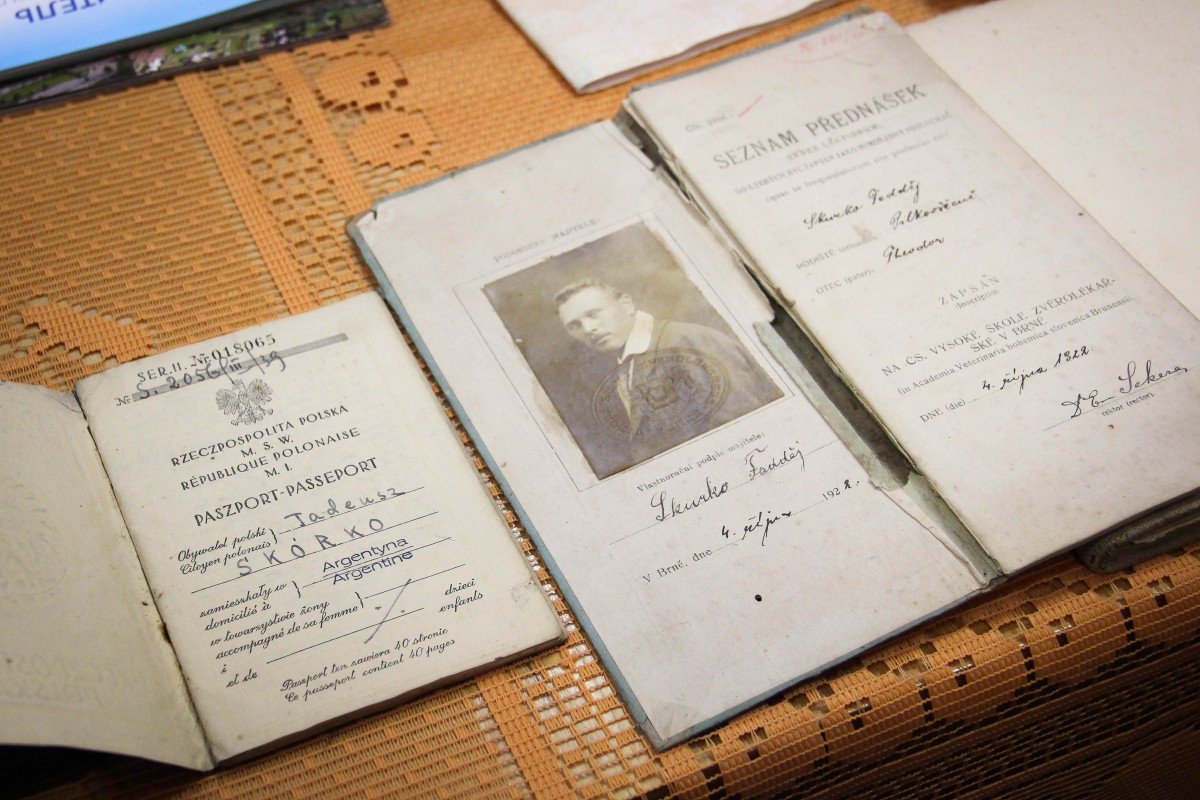 SER.II. № 018065
Nr S. 2056/III/39
RZECZPOSPOLITA POLSKA
M. S. W.
RÉPUBLIQUE POLONAISE
M. I.
PASZPORT-PASSEPORT
Obywatel polski
Citoyen polonais
Tadeusz
SKÓRKO
zamieszkały w
domicilié à
Argentyna
Argentine
w towarzystwie żony
accompagné de sa femme
i
et de
dzieci
enfants
Paszport ten zawiera 40 stronic
Ce passeport contient 40 pages
PODOBIZNA MAJITELE.
Vlastnoruční podpis majitele:
Skurko Fadděj
V Brně, dne 4. října 1922.
SEZNAM PŘEDNÁŠEK
INDEX LECTIONUM,
Skurko Fadděj
RODIŠTĚ
OTEC (pater): Theodor
ZAPSÁN
(Inscriptus)
NA ČS. VYSOKÉ ŠKOLE ZVĚROLÉKAŘ-
SKÉ V BRNĚ
(in Academia Veterinaria bohemica slovenica Brunensi)
DNE (die) 4. října 1922
rektor (rector).